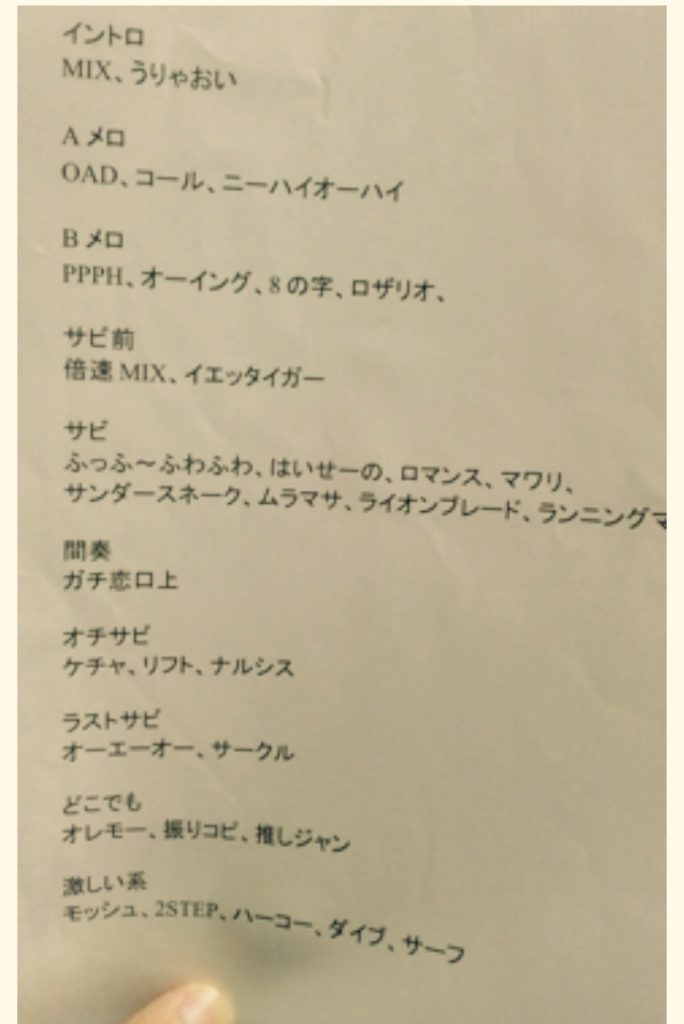 イントロ
MIX、うりゃおい
A メロ
OAD、コール、ニーハイオーハイ
B メロ
PPPH、オーイング、8 の字、ロザリオ、
サビ前
倍速 MIX、イエッタイガー
サビ
ふっふ～ふわふわ、はいせーの、ロマンス、マワリ、
サンダースネーク、ムラマサ、ライオンブレード、ランニングマ
間奏
ガチ恋口上
オチサビ
ケチャ、リフト、ナルシス
ラストサビ
オーエーオー、サークル
どこでも
オレモー、振りコピ、推しジャン
激しい系
モッシュ、2STEP、ハーコー、ダイブ、サーフ